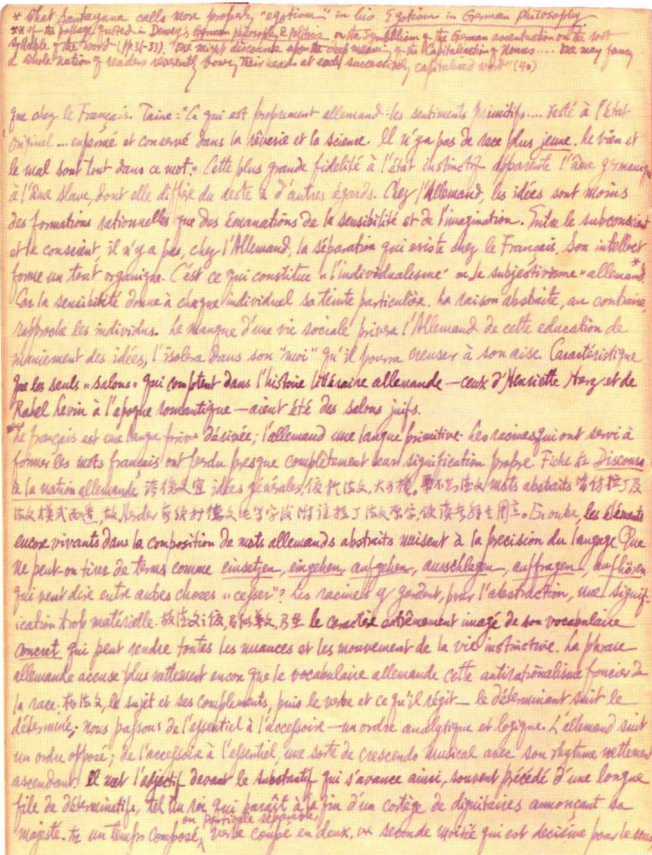 * What Santayana calls more properly "egotism" in his Egotism in German philosophy
** cf the passage quoted in Dewey's German philosophy & politics on the symbolism of the German accentuation on the root
syllable of the word (pp. 31-33). "One might discourse upon the deep meaning of the Capitalization of Nouns.... We may fancy
a whole nation of readers reverently bowing their heads at each successively capitalized word" (40)
que chez le Français. Taine: "Ce qui est proprement allemand: les sentiments primitifs.... resté à l'état
original... enfermé et conservé dans la rêverie et la science. Il n'y a pas de race plus jeune, le bien et
le mal sont tout dans ce mot". Cette plus grande fidélité à l'état instinctif apparente l'âme germanique
à l'âme slave, dont elle diffère du reste à d'autres égards. Chez l'Allemand, les idées sont moins
des formations rationnelles que des émanations de la sensibilité et de l'imagination. Entre le subconscient
et le conscient, il n'y a pas, chez l'Allemand, la séparation qui existe chez le Français. Son intellect
forme un tout organique. C'est ce qui constitue "l'individualisme" ou le subjectivisme "allemand.
Car la sensibilité donne à chaque individuel sa teinte particulière. La raison abstraite, au contraire,
rapproche les individus. Le manque d'une vie sociale privera l'Allemand de cette education de
maniement des idées, l'isolera dans son "moi" qu'il pourra creuser à son aise. Caractéristique
que les seuls "salons" qui comptent dans l'histoire littéraire allemande — ceux d'Henriette Herz et de
Rahel Levin à l'époque romantique — aient été des salons juifs.
** Le français est une langue dérivée; l'allemand une langue primitive. Les racines qui ont servi à
former les mots français ont perdu presque complètement leur signification propre. Fichte Discours
à la nation allemande idées générales mots abstraits
Herder En outre, les éléments
encore vivants dans la composition de mots allemands abstraits nuisent à la précision du langage. Que
ne peut-on tirer de termes comme einsetzen, eingehen, aufgehen, ausschlagen, auffragen,
qui veut dire entre autres choses "cesser"? Les racines y gardent, pour l'abstraction, une signif-
ication trop matérielle. le caractère extrêmement imagé de son vocabulaire
concret qui peut rendre toutes les nuances et les mouvements de la vie instinctive. La phrase
allemande accuse plus nettement encore que le vocabulaire allemande cette antirationalisme foncier de
la race. le sujet et ses compléments, puis le verbe et ce qu'il régit — le déterminant suit le
déterminé; nous passons de l'essentiel à l'accessoire — un ordre analytique et logique. L'allemand suit
un ordre opposé; de l'accessoire à l'essentiel, une sorte de crescendo musical avec son rhythme nettement
ascendant. Il met l'adjectif devant le substantif qui s'avance ainsi, souvent précédé d'une longue
file de déterminatifs, tel un roi qui paraît à la fin d'un cortège de dignitaires annonçant sa
majesté. un temps composé, ou particule séparable, verbe coupé en deux, seconde moitié qui est décisive pour le sens,